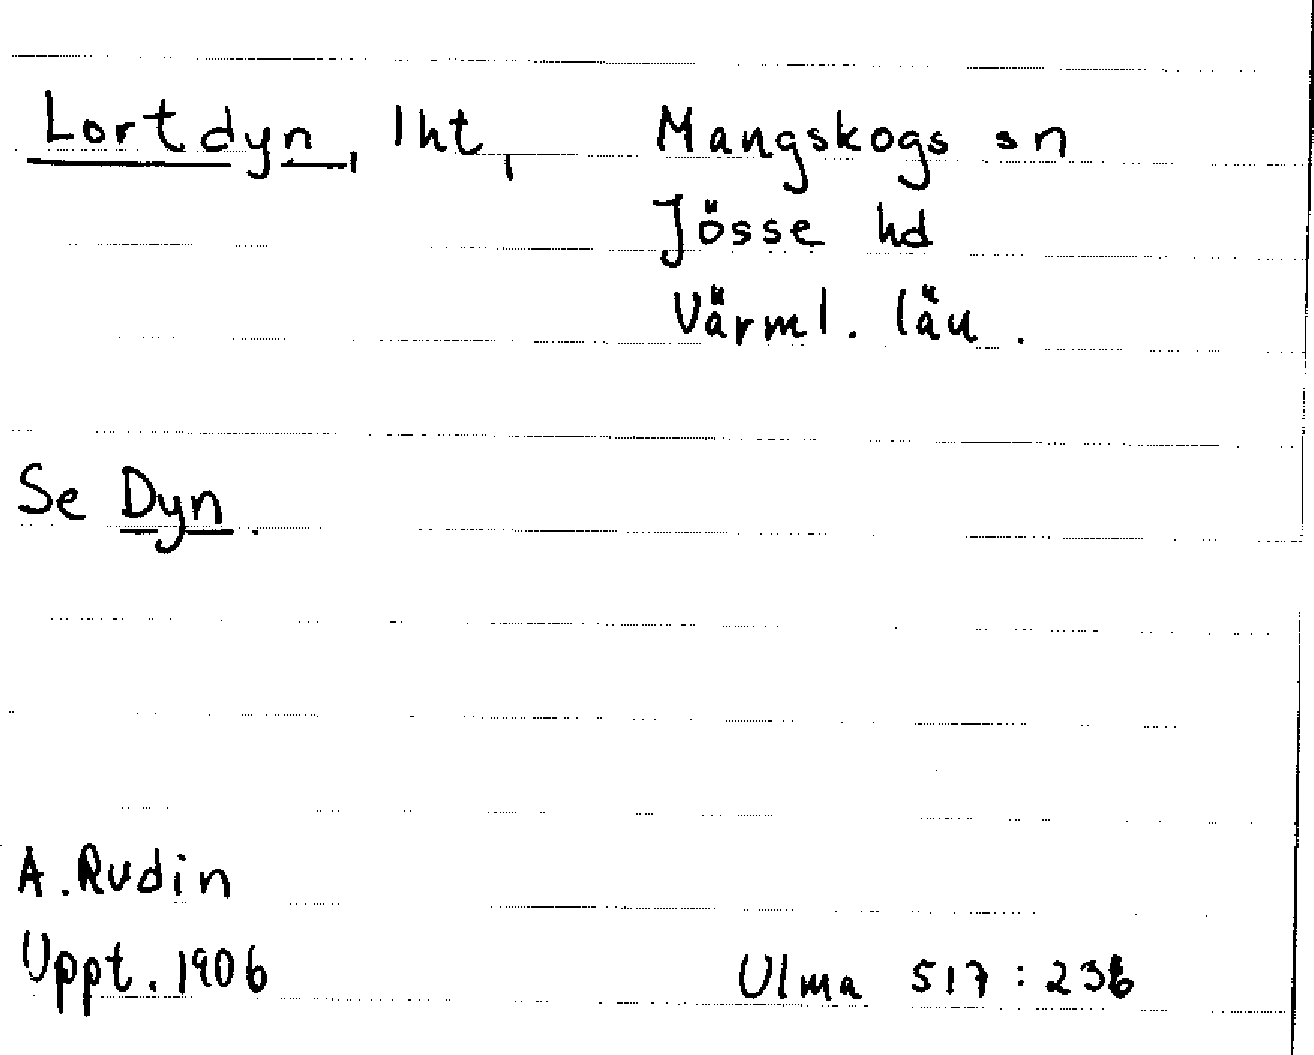 Lortdyn, lht, Mangskogs sn
Jösse hd
Värml. län.
Se Dyn.
A. Rudin
Uppt. 1906
Ulma 517:236